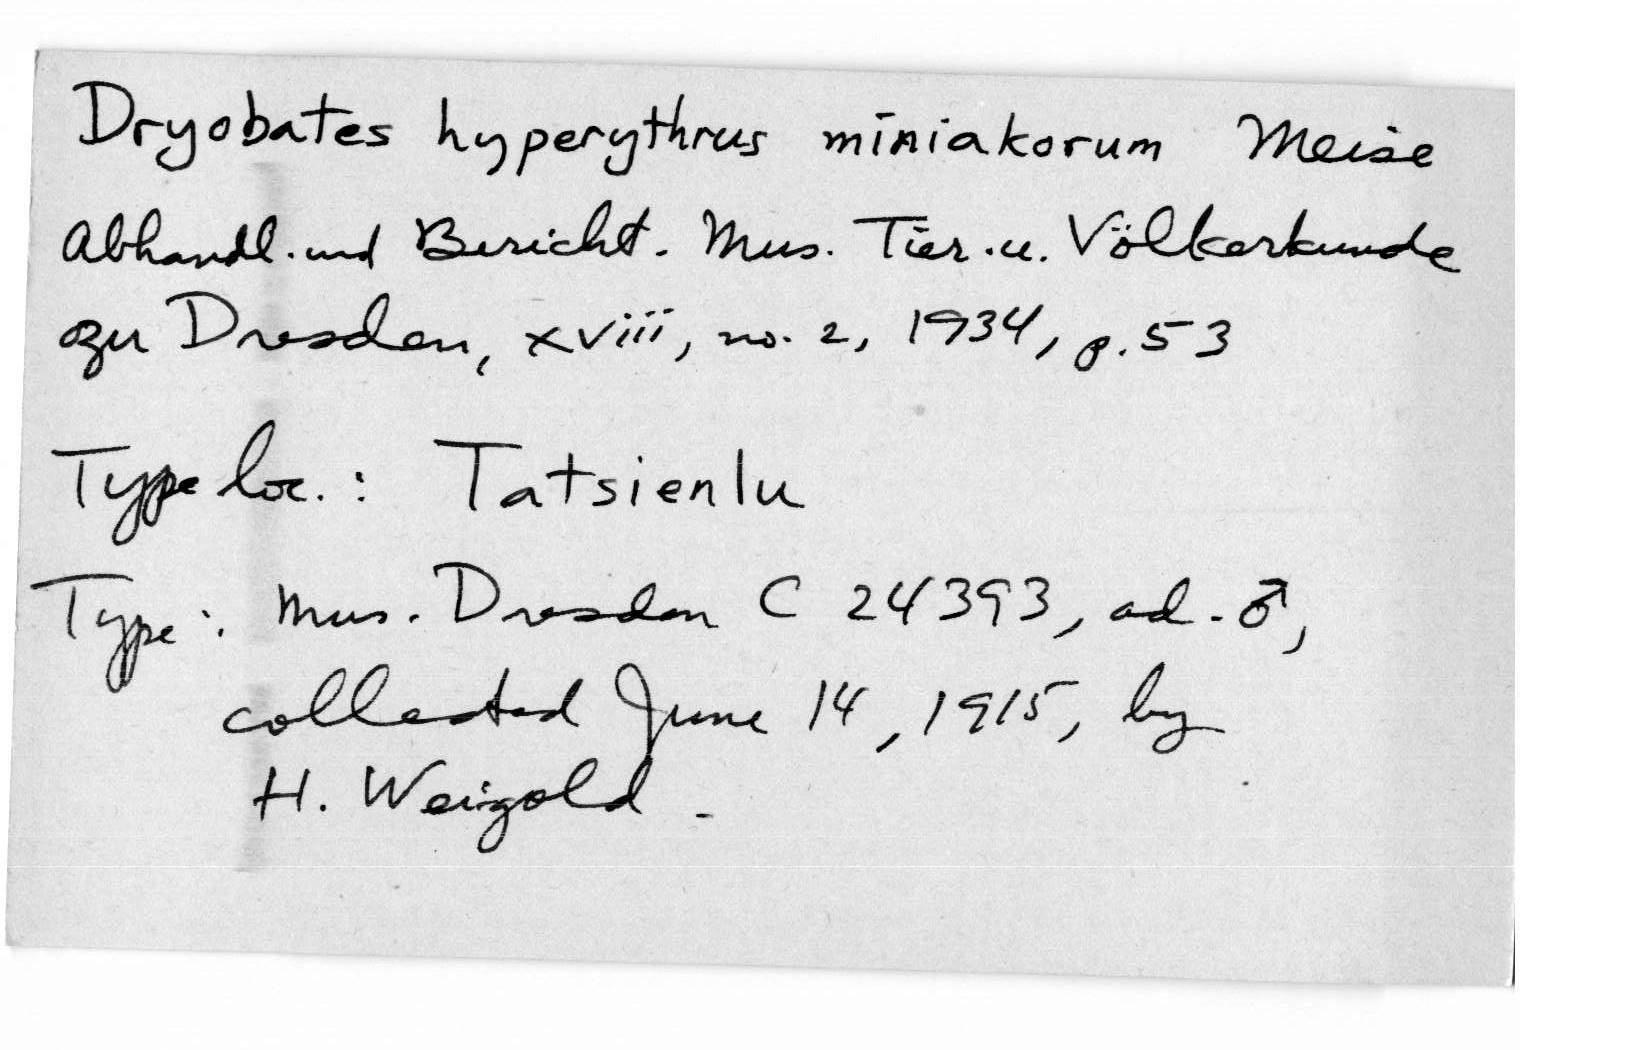 Dryobates hyperythrus miniakorum Meise
Abhandl. und Bericht. Mus. Tier. u. Völkerkunde
zu Dresden, xviii, no. 2, 1934, p. 53
Type loc. : Tatsienlu
Type : Mus. Dresden C 24393, ad. ♂,
collected June 14, 1915, by
H. Weigold.